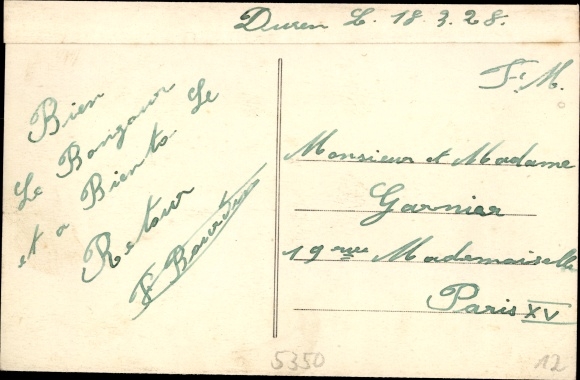 Duren L. 18.3.28.
F. M.
Bien
Le Bongour
et a Biento Le
Retour
F Bourdin
Monsieur et Madame
Garnier
19 rue Mademoiselle
Paris XV
5350
12